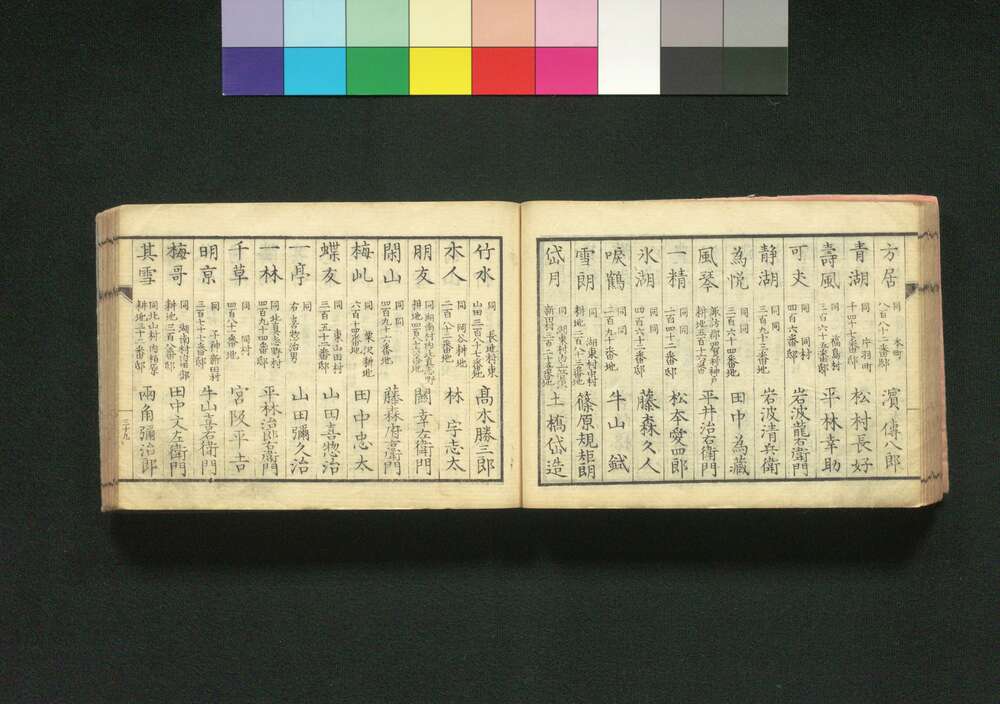 方居 同 本町 八百八十二番邸 濵傳八郎
青湖 同 片羽町 千四十七番邸 松村長好
壽風 同 福島村 三百六十五番邸 平林幸助
可丈 同 同村 四百六番邸 岩波龍右衛門
静湖 同 同 三百九十三番地 岩波清兵衛
為悦 同 同 三百六十四番地 田中為藏
風琴 諏訪郡四賀村神戸 耕地五百十六番 平井治右衛門
一精 同 同 二百四十二番 松本愛四郎
氷湖 同 同 四百六十二番 藤森久人
唳鶴 同 同 二百九十番地 牛山鉞
雪朗 同 湖東村中村 二百八十三番地 篠原規矩朗
岱月 同 湖東村 新田村二百二十五番地 土橋岱造
竹水 同 長地村東 山田三百八十七番地 髙木勝三郎
水人 同 同谷耕地 二百八十二番地 林宇志太
朋友 同湖南村北真志野 耕地四百七十三番地 關幸左衛門
閑山 同 同 四百九十六番地 藤森府右衛門
梅屺 同 栗沢耕地 六百十四番邸 田中忠太
蝶友 同 東山田村 三百五十三番邸 山田喜惣治
一亭 同 同 右喜惣治男 山田彌久治
一林 同北真志野村 四百九十四番邸 平林治郎右衛門
千草 同 同村 四百八十二番地 宮阪平吉
明哀 同 子神新田村 三百七十七番邸 牛山善右衛門
梅哥 同 湖南村沼田郷 耕地三百八番邸 田中文左衛門
其雪 同北山村内柏原 耕地五十二番邸 兩角彌治郎
三十九